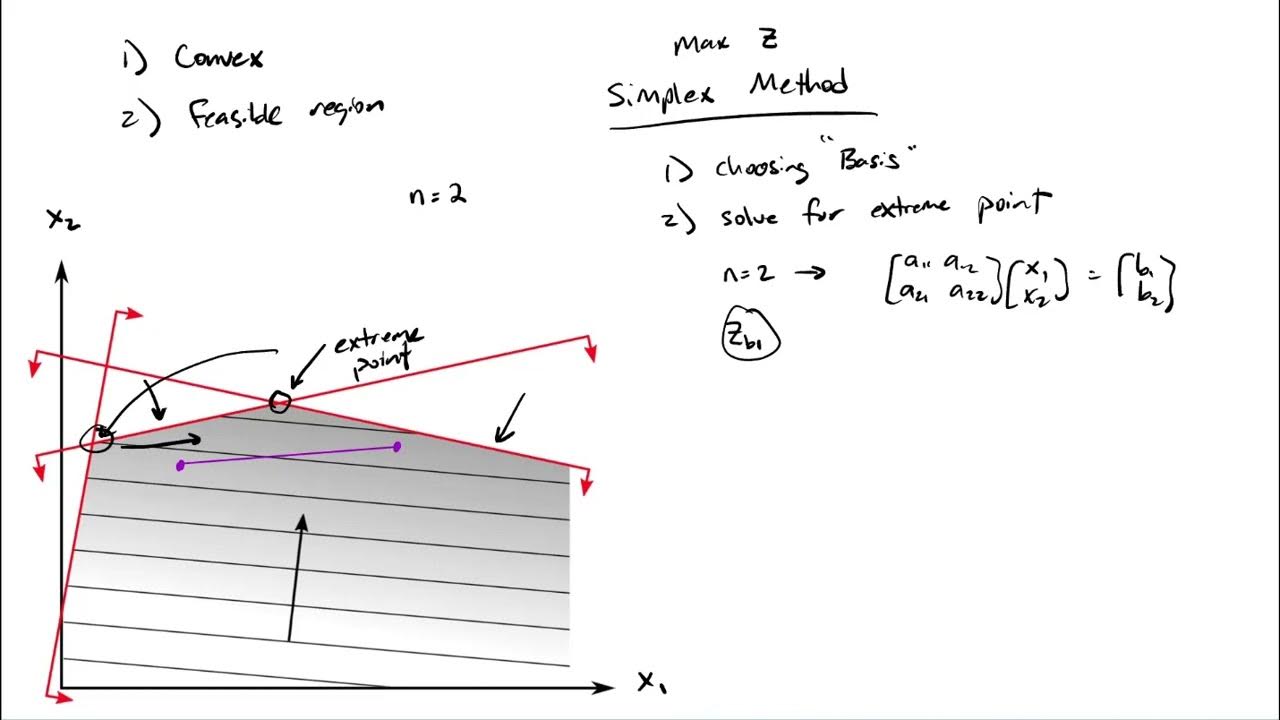 1) Convex
2) Feasible region
n = 2
x₂
extreme
point
x₁
Max Z
Simplex Method
1) choosing "Basis"
2) solve for extreme point
n = 2 → [a₁₁ a₁₂] [x₁] = [b₁]
[a₂₁ a₂₂] [x₂] [b₂]
Z_b₁